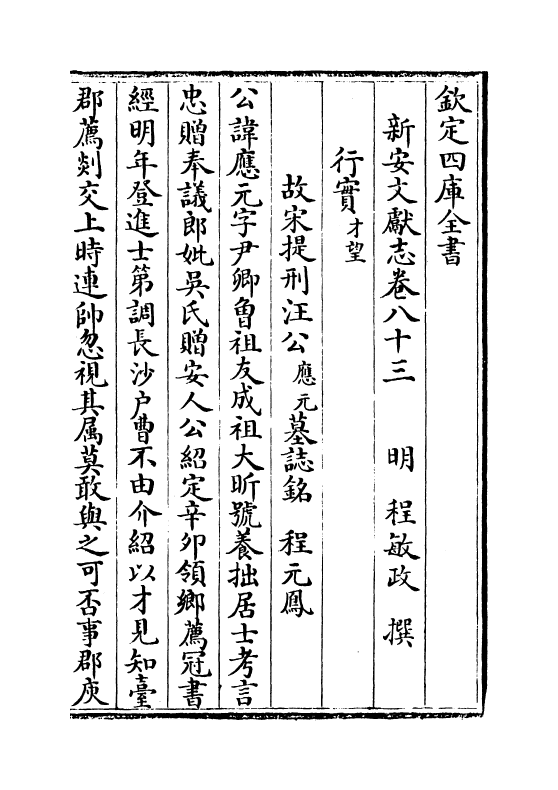 欽定四庫全書
新安文獻志卷八十三　明　程敏政　撰
行實才望
故宋提刑汪公應元墓誌銘　程元鳳
公諱應元字尹卿曾祖友成祖大昕號養拙居士考言
忠贈奉議郎妣吳氏贈安人公紹定辛卯領鄉薦冠書
經明年登進士第調長沙户曹不由介紹以才見知臺
郡薦剡交上時連帥忽視其属莫敢與之可否事郡庾